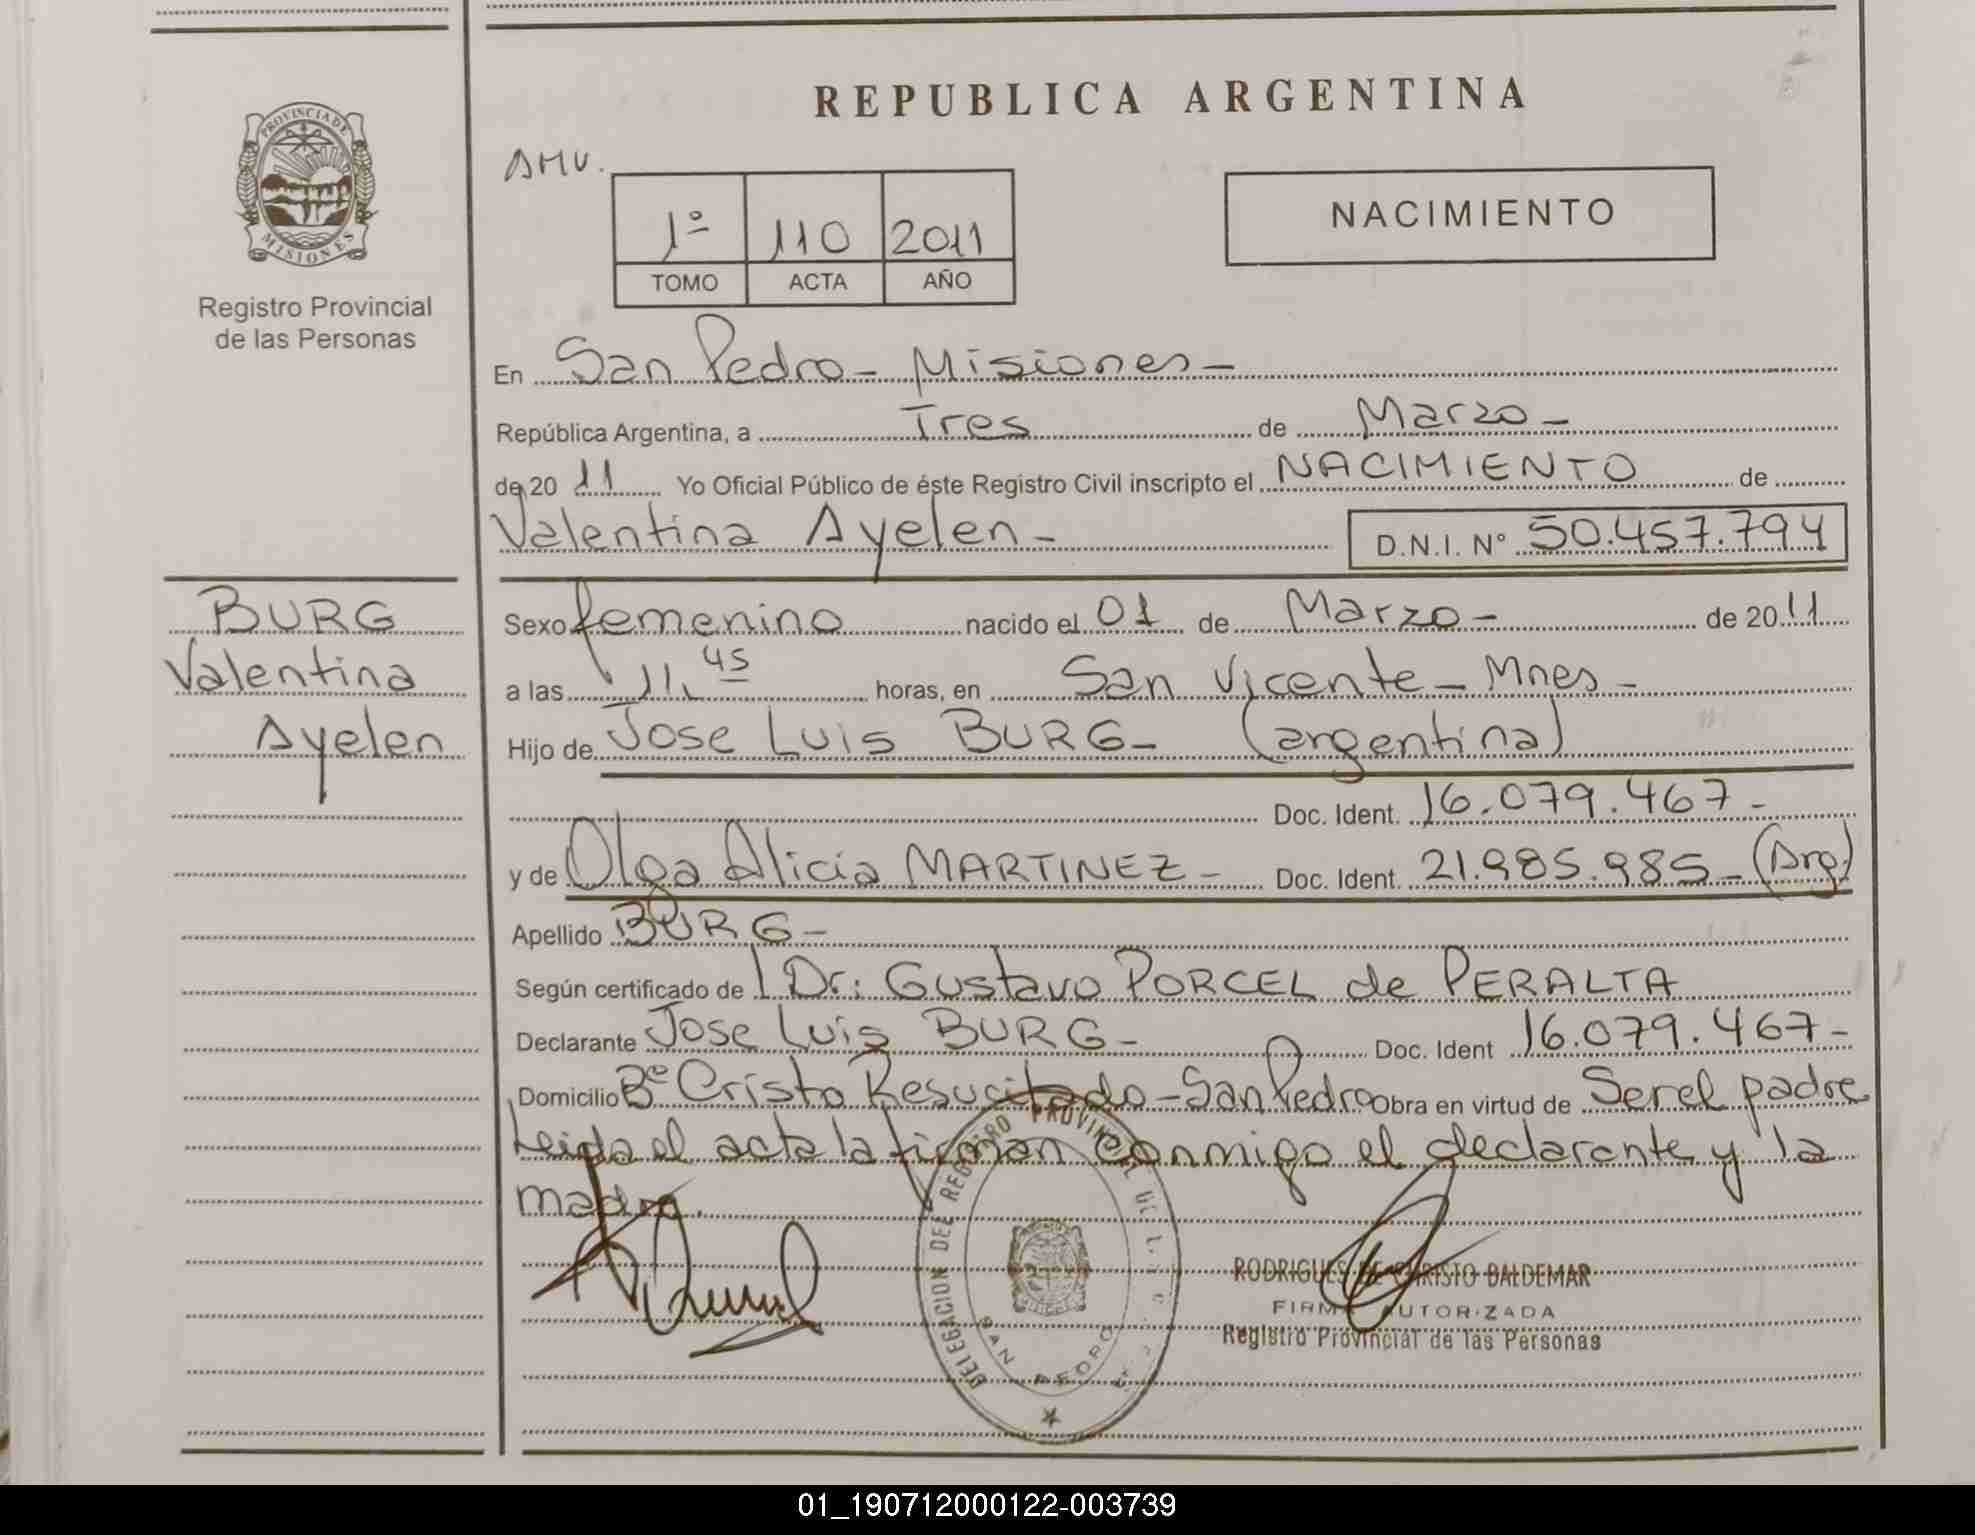 REPUBLICA ARGENTINA
PROVINCIA DE
MISIONES
Registro Provincial
de las Personas
AMV.
NACIMIENTO
1º 110 2011
TOMO ACTA AÑO
En San Pedro - Misiones -
República Argentina, a Tres de Marzo -
de 20 11 Yo Oficial Público de éste Registro Civil inscripto el NACIMIENTO de
Valentina Ayelen - D.N.I. Nº 50.457.794
BURG
Valentina
Ayelen
Sexo femenino nacido el 01 de Marzo - de 20 11
a las 11,45 horas, en San Vicente - Mnes -
Hijo de Jose Luis BURG - (argentina)
Doc. Ident. 16.079.467 -
y de Olga Alicia MARTINEZ - Doc. Ident. 21.985.985 - (Arg)
Apellido BURG -
Según certificado de Dr: Gustavo PORCEL de PERALTA
Declarante Jose Luis BURG - Doc. Ident 16.079.467 -
Domicilio Bº Cristo Resucitado - San Pedro Obra en virtud de Ser el padre
Leida el acta la firman conmigo el declarante y la
madre.
DELEGACION DEL REGISTRO PROVINCIAL DE
SAN PEDRO
RODRIGUES DE CHRISTO BALDEMAR
FIRMA AUTORIZADA
Registro Provincial de las Personas
01_190712000122-003739